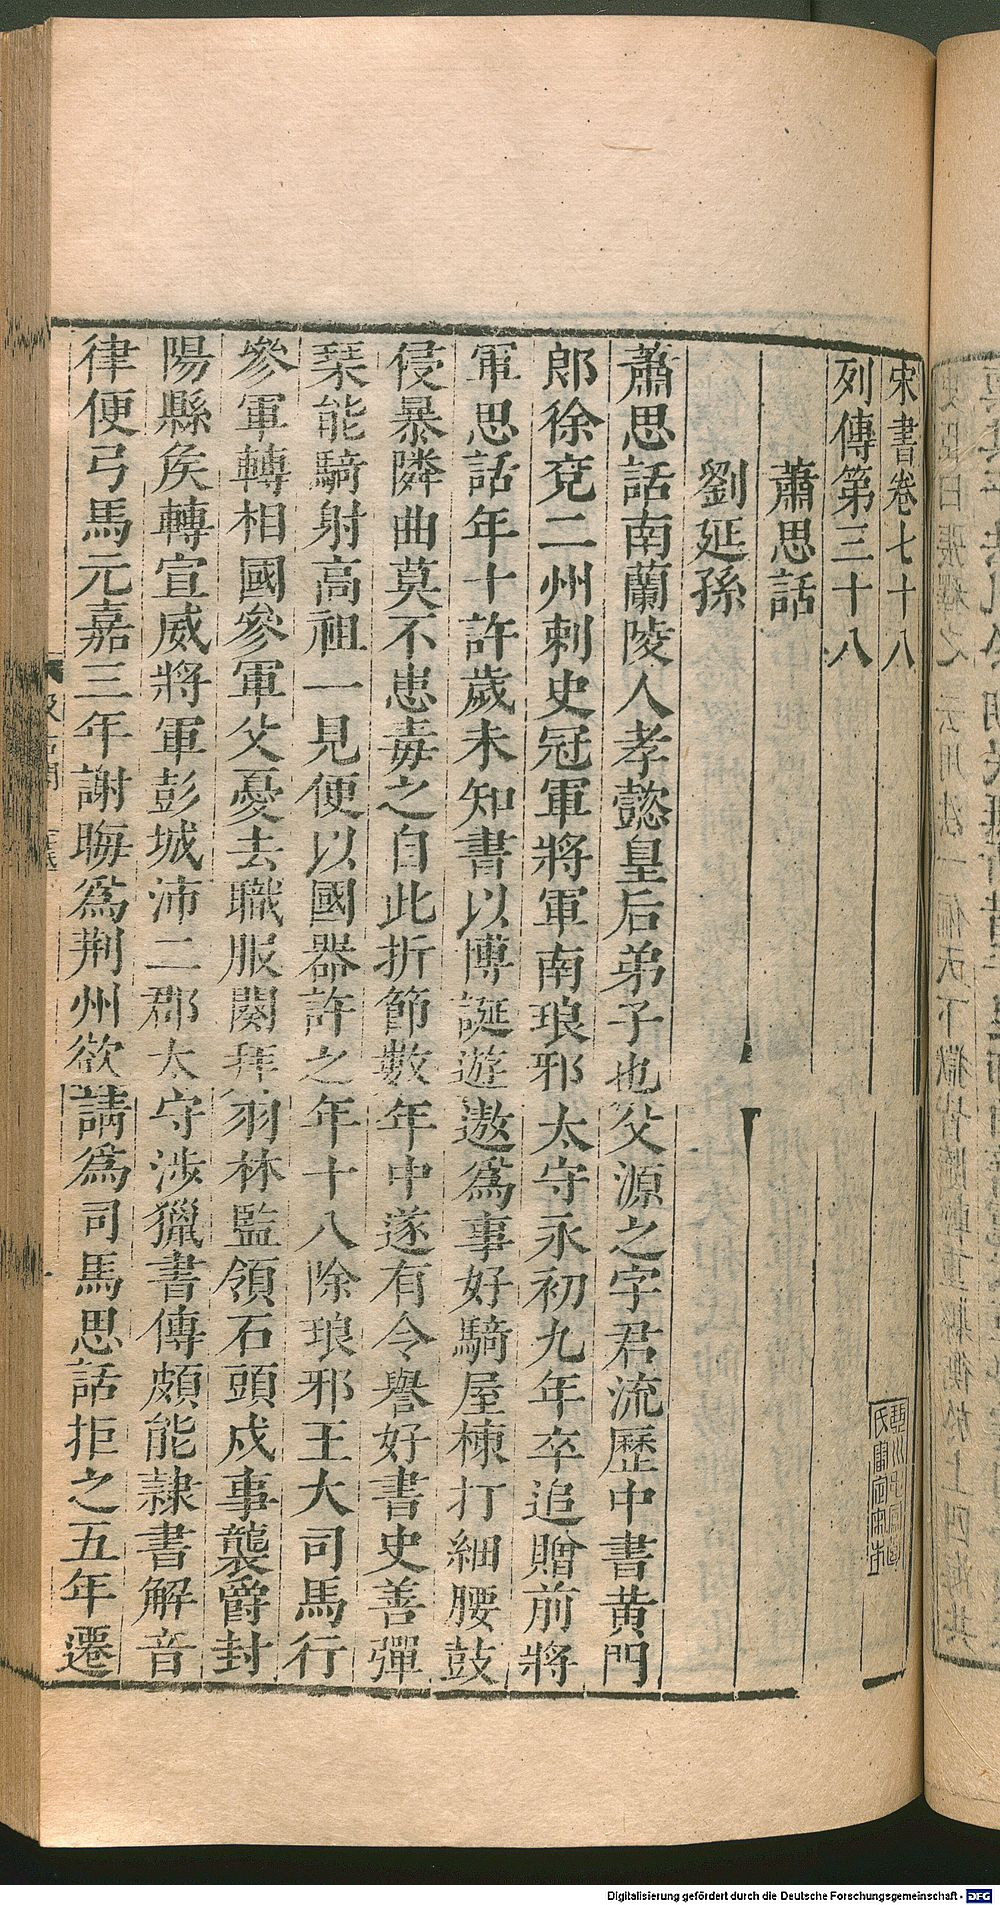 宋書卷七十八
列傳第三十八
蕭思話
劉延孫
蕭思話南蘭陵人孝懿皇后弟子也父源之字君流歷中書黃門
郎徐兗二州刺史冠軍將軍南琅邪太守永初九年卒追贈前將
軍思話年十許歲未知書以博誕遊遨爲事好騎屋棟打細腰鼓
侵暴隣曲莫不患毒之自此折節數年中遂有令譽好書史善彈
琹能騎射高祖一見便以國器許之年十八除琅邪王大司馬行
參軍轉相國參軍父憂去職服闋拜羽林監領石頭戍事襲爵封
陽縣矦轉宣威將軍彭城沛二郡太守涉獵書傳頗能隷書解音
律便弓馬元嘉三年謝晦爲荆州欲請爲司馬思話拒之五年遷
Digitalisierung gefördert durch die Deutsche Forschungsgemeinschaft - DFG